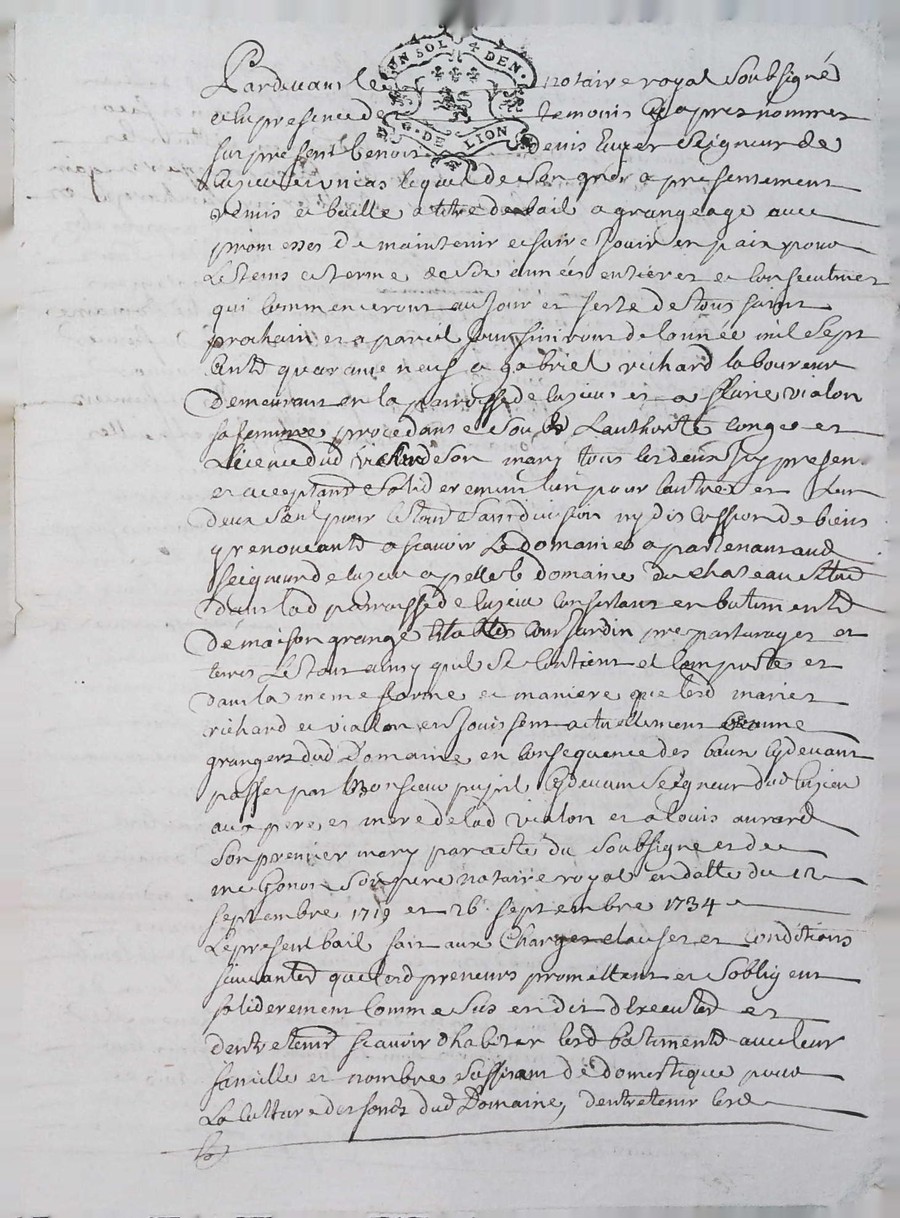 UN SOL 4 DEN.
G. DE LION
Pardevant le notaire royal soubsigné
et en presence de temoins cy apres nommés
fut present benoit denis Seigneur de
lequel de son gré a presentement
remis et baillé a titre de bail a grangeage avec
promesses de maintenir et faire jouir en paix pour
le tems et terme de six années entieres et consecutives
qui commenceront au jour et feste de tous saint
prochain et a pareil jour finiront de lannée mil sept
cents quarante neuf a gabriel richard laboureur
demeurant en la parroisse de luzieu et a fleurie vialon
sa femme procedante sous lauthorité congé et
licence dud richard son mary tous les deux icy presen
et acceptants solid erement lun pour lautre et
deux seul pour le tout sans division ny discussion de biens
y renonceants a scavoir le domaine apartenant aud
seigneur de luzieu apellé le domaine du chateau situé
dans lad parroisse de luzieu consistant en batiments
de maison grange cour jardin pre pasturages et
terres le tout ainsy quil se contient et comporte et
dans la meme forme et maniere que lesd mariés
richard et vialon en jouissent actuellement comme
grangers dud domaine en consequence des baux cydevant
passés par Monsieur pujol cydevant Seigneur dud luzieu
aux pere et mere de lad vialon et a louis aurard
son premier mary par acte du soubsigné et de
me gonon notaire royal en datte du 12
septembre 1719 et 26 septembre 1734
le present bail fait aux charges clauses et conditions
suivantes que lesd preneurs promettent et sobligent
soliderement comme sus en dit dexecuter et
dentretenir scavoir dhabiter lesd batiments avec leur
famille et nombre suffisant de domestique pour
la culture des fonds dud Domaine, dentretenir lesd